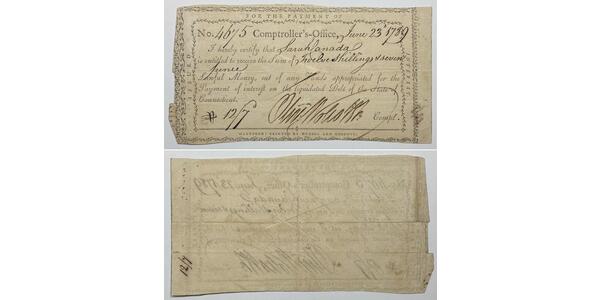 FOR THE PAYMENT OF
No. 4675 Comptroller's-Office, June 23d 1789
I hereby certify that Sarah Canada
is entitled to receive the Sum of Twelve Shillings & seven
pence
Lawful Money, out of any Funds appropriated for the
Payment of interest on the liquidated Debt of the State of
Connecticut.
12/7 Compt.
HARTFORD: PRINTED BY HUDSON AND GOODWIN.
12/7